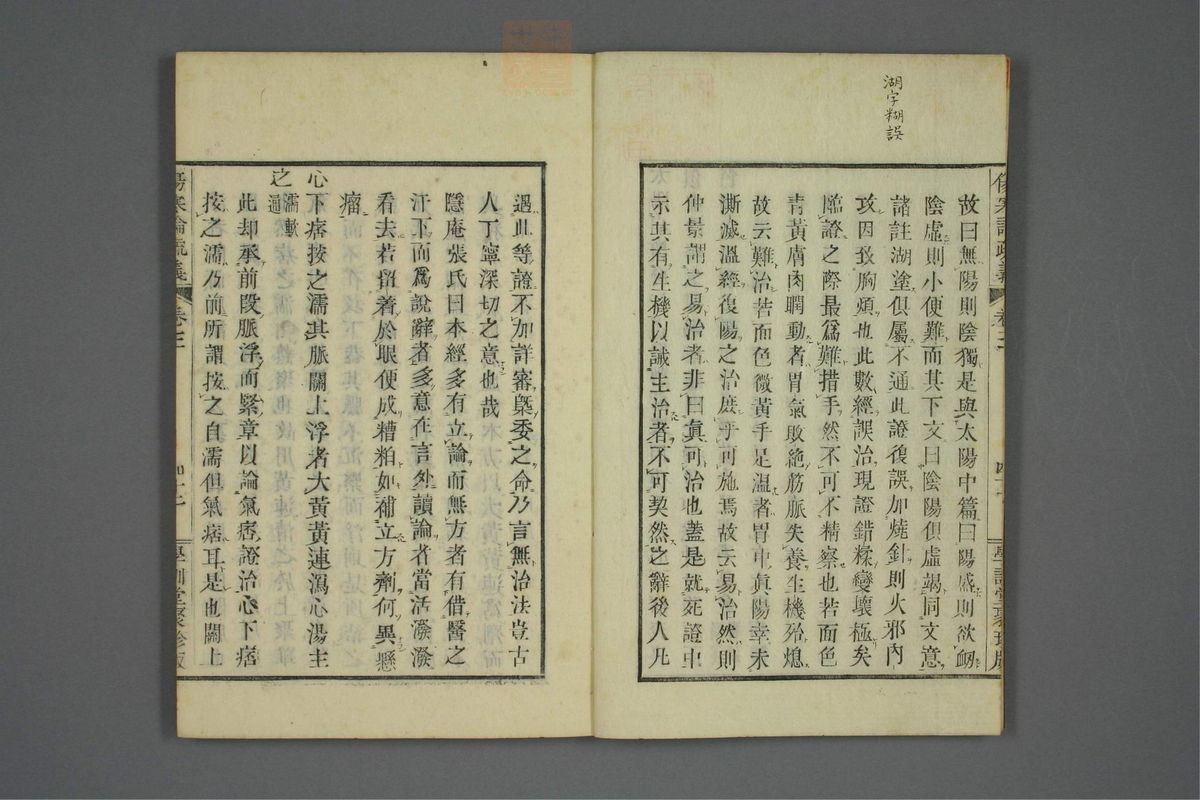 湖字糊誤
故曰無陽則陰獨是與太陽中篇曰陽盛則欲衂
陰虛則小便難而其下文曰陰陽俱虛竭同文意
諸註湖塗俱屬不通此證復誤加燒針則火邪內
攻因致胸煩也此數經誤治現證錯糅變壞極矣
臨證之際最爲難措手然不可不精察也若面色
青黃膚肉瞤動者胃氣敗絶筋脈失養生機殆熄
故云難治若面色微黃手足溫者胃中眞陽幸未
澌滅溫經復陽之治庶乎可施焉故云易治然則
仲景謂之易治者非曰眞可治也蓋是就死證中
示其有生機以誡主治者不可契然之辭後人凡
遇此等證不加詳審㮣委之命乃言無治法豈古
人丁寧深切之意也哉
隱庵張氏曰本經多有立論而無方者有借醫之
汗下而爲說辭者多意在言外讀論者當活潑潑
看去若留着於眼便成糟粕如補立方劑何異懸
瘤
心下痞按之濡其脈關上浮者大黃黃連瀉心湯主
之 濡軟通
此却承前段脈浮而緊章以論氣痞證治心下痞
按之濡乃前所謂按之自濡但氣痞耳是也關上